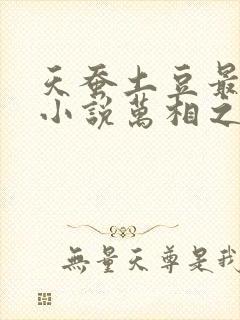 天蚕土豆最
小説萬相之
無量天尊是我